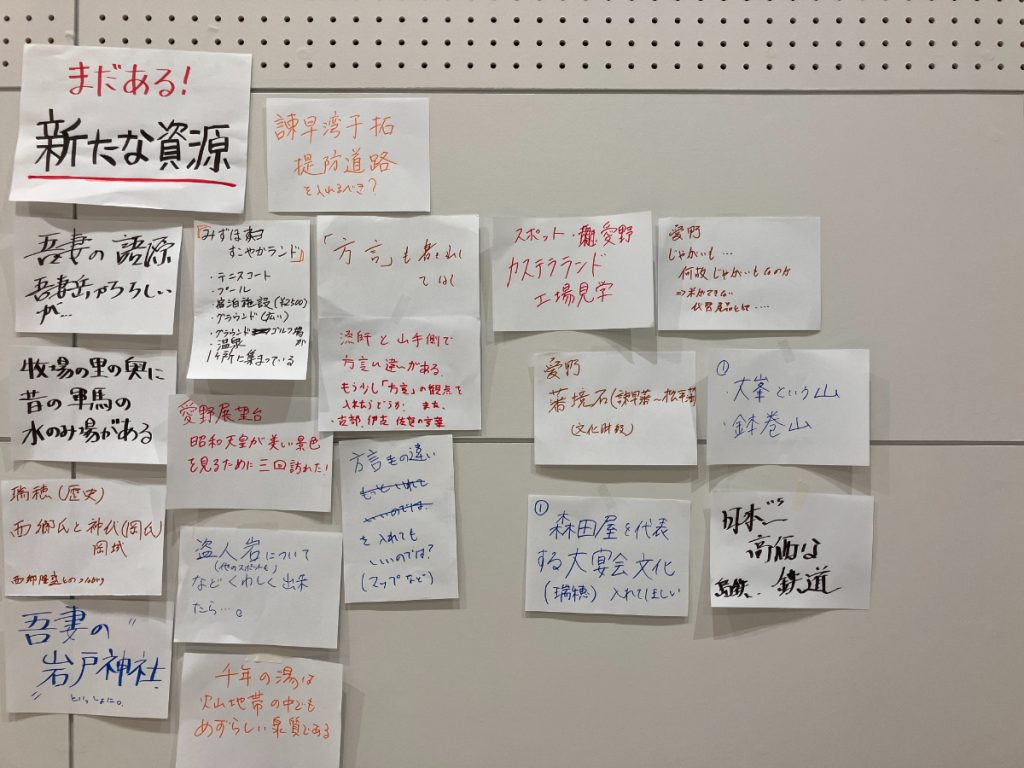 まだある!
新たな資源
諫早湾干拓
堤防道路
を入れるべき?
吾妻の語源
吾妻岳からしい
が…
「みずほ
すこやかランド」
・テニスコート
・プール
・宿泊施設(¥2500)
・グラウンド(広い)
・グラウンドゴルフ場
・温泉 が
1ヶ所に集まっている
「方言」も
てはく
漁師と山手側で
方言に違いがある。
もう少し「方言」の観点を
入れたらどうか? また、
スポット・愛野
カステラランド
工場見学
愛野
じゃがいも…
何故じゃがいもなのか
⇒米ができない
牧場の里の奥に
昔の軍馬の
水のみ場がある
愛野展望台
昭和天皇が美しい景色
を見るために三回訪れた!
方言もの違い
もっと入れて
いいのでは
を入れても
いいのでは?
(マップなど)
愛野
藩境石(諫早藩〜松平藩)
(文化財級)
①
・大峯という山
・鉢巻山
瑞穂(歴史)
西郷氏と神代(岡氏)
岡城
西郷隆盛とのつながり
盗人岩について
(他のスポットも)
などくわしく出来
たら…。
①
森田屋を代表
する大宴会文化
(瑞穂) 入れてほしい
日本一
高価な
島鉄 鉄道
吾妻の〃
岩戸神社.
千年の湯は
火山地帯の中でも
めずらしい泉質である